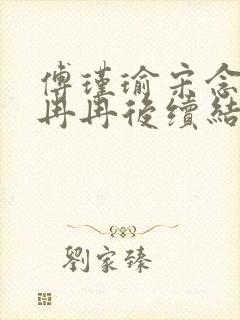 傅瑾瑜宋念
冉冉後續結
劉家臻